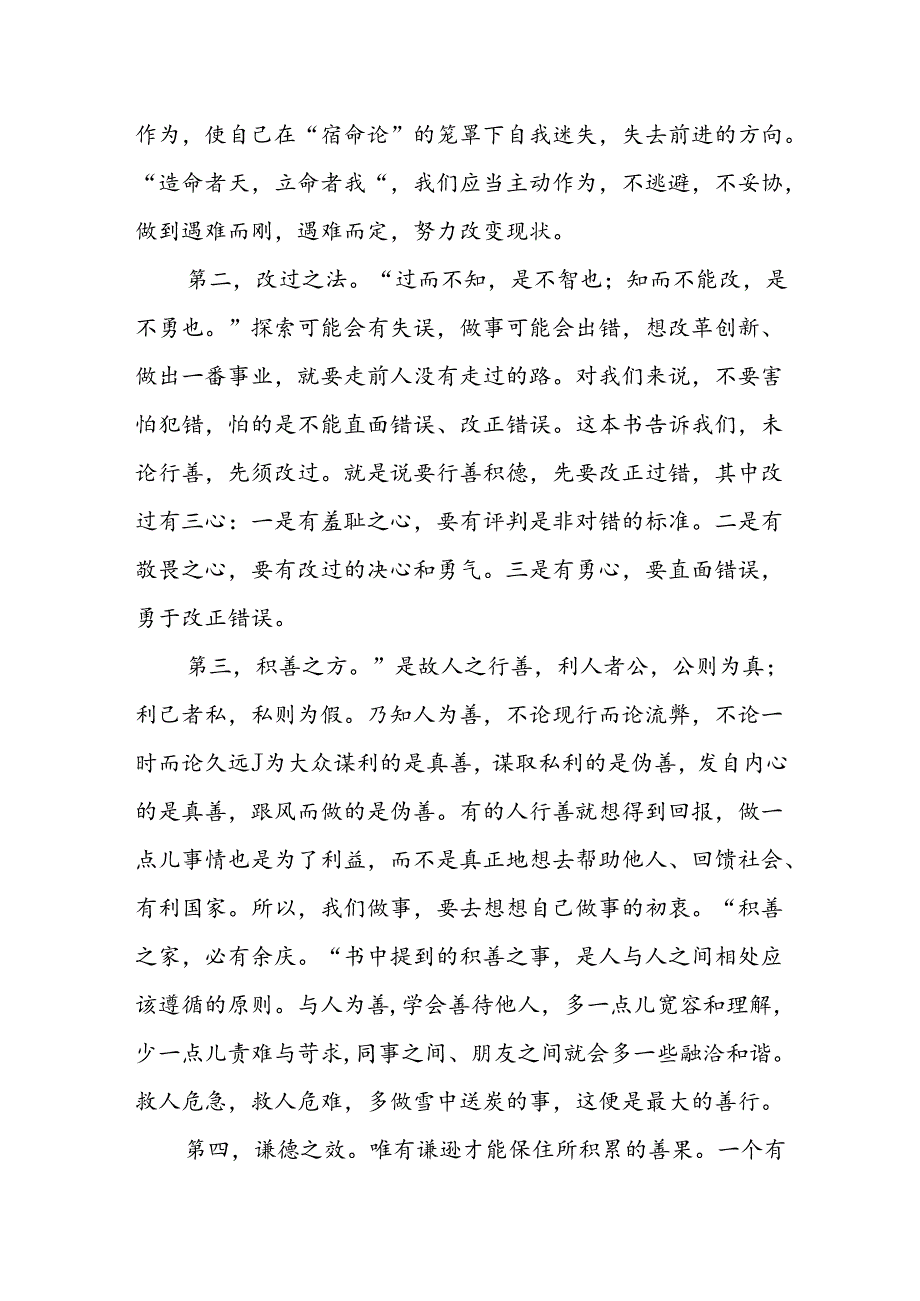 作为，使自己在“宿命论”的笼罩下自我迷失，失去前进的方向。
“造命者天，立命者我“，我们应当主动作为，不逃避，不妥协，
做到遇难而刚，遇难而定，努力改变现状。
第二，改过之法。“过而不知，是不智也；知而不能改，是
不勇也。”探索可能会有失误，做事可能会出错，想改革创新、
做出一番事业，就要走前人没有走过的路。对我们来说，不要害
怕犯错，怕的是不能直面错误、改正错误。这本书告诉我们，未
论行善，先须改过。就是说要行善积德，先要改正过错，其中改
过有三心：一是有羞耻之心，要有评判是非对错的标准。二是有
敬畏之心，要有改过的决心和勇气。三是有勇心，要直面错误，
勇于改正错误。
第三，积善之方。”是故人之行善，利人者公，公则为真；
利己者私，私则为假。乃知人为善，不论现行而论流弊，不论一
时而论久远J为大众谋利的是真善，谋取私利的是伪善，发自内心
的是真善，跟风而做的是伪善。有的人行善就想得到回报，做一
点儿事情也是为了利益，而不是真正地想去帮助他人、回馈社会、
有利国家。所以，我们做事，要去想想自己做事的初衷。“积善
之家，必有余庆。“书中提到的积善之事，是人与人之间相处应
该遵循的原则。与人为善,学会善待他人，多一点儿宽容和理解，
少一点儿责难与苛求,同事之间、朋友之间就会多一些融洽和谐。
救人危急，救人危难，多做雪中送炭的事，这便是最大的善行。
第四，谦德之效。唯有谦逊才能保住所积累的善果。一个有